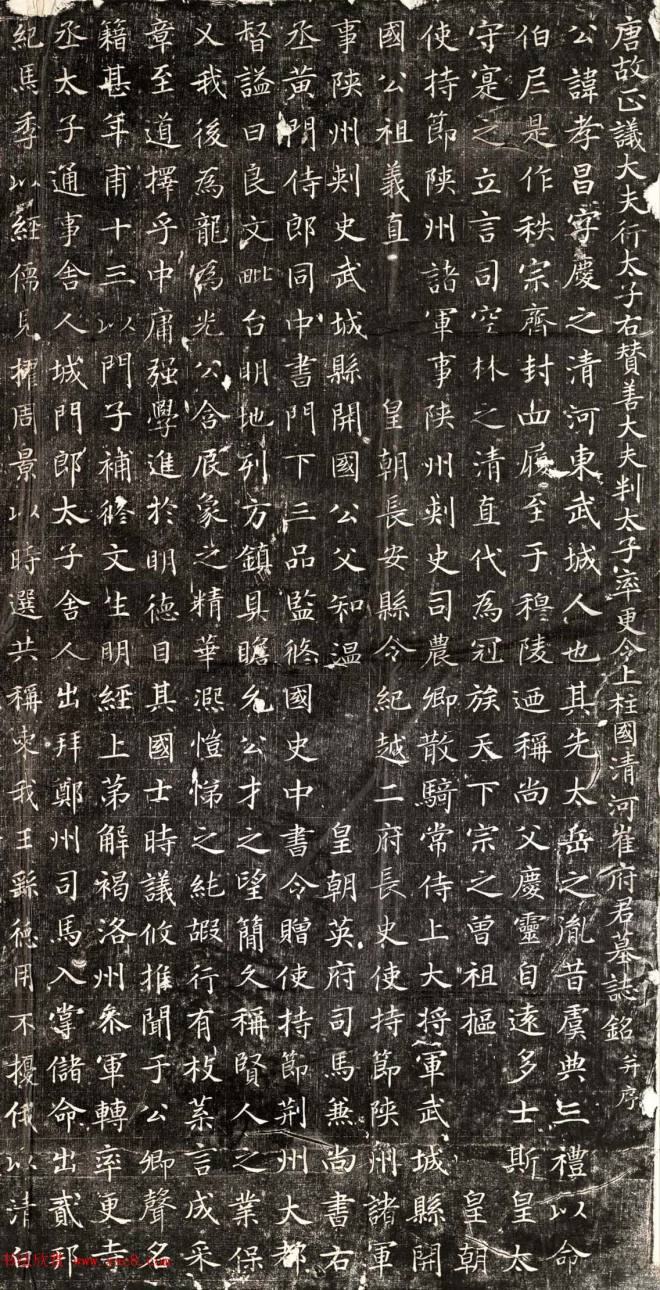 唐故正議大夫行太子右贊善大夫判太子率更令上柱國清河崔府君墓誌銘并序
公諱孝昌字慶之清河東武城人也其先太岳之胤昔虞典三禮以命
伯尼是作秩宗齊封血履至于穆陵迺稱尚父慶靈自遠多士斯皇太
守寔之立言司空林之清直代為冠族天下宗之曾祖摳 皇朝
使持節陝州諸軍事陝州刺史司農卿散騎常侍上大將軍武城縣開
國公祖義直 皇朝長安縣令紀越二府長史使持節陝州諸軍
事陝州刺史武城縣開國公父知温 皇朝英府司馬兼尚書右
丞黃門侍郎同中書門下三品監修國史中書令贈使持節荆州大都
督謚曰良文毗台明地列方鎮具瞻允公才之望簡久稱賢人之業保
乂我後為龍為光公含辰象之精華濕愷悌之純嘏行有枝葉言成采
章至道擇乎中庸强學進於明德目其國士時議攸推聞于公卿聲名
籍甚年甫十三以門子補修文生明經上第解褐洛州參軍轉率更寺
丞太子通事舍人城門郎太子舍人出拜鄭州司馬入掌儲命出貳邦
紀馬季以經儒見擢周景以時選共稱來我王繇德用不擾俄以清
www.yac8.com